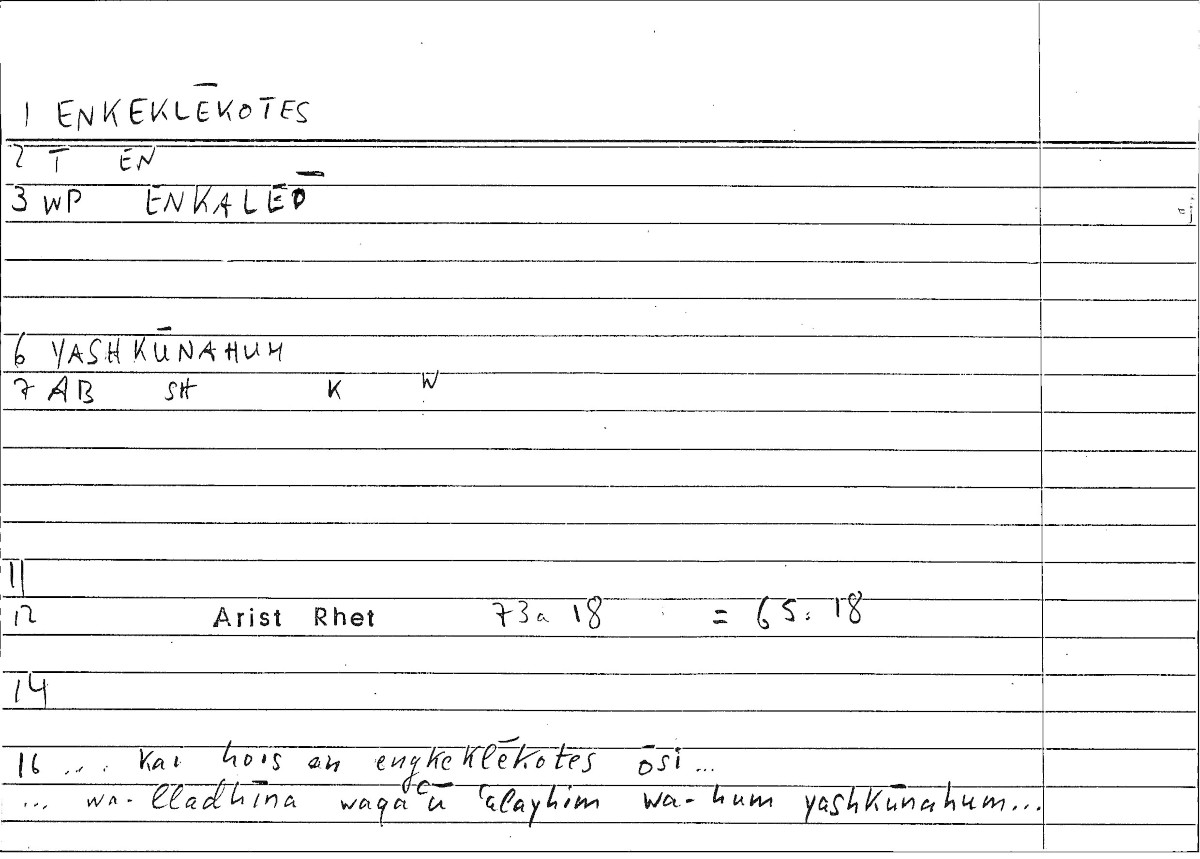 1 ENKEKLĒKOTES
2 T EN
3 WP ENKALEŌ
6 YASHKŪNAHUM
7 AB SH K W
11
12 Arist Rhet 73a 18 = 65:18
14
16 .... kai hois an engkeklēkotes ōsi ...
... wa-lladhīna waqaʿū ʿalayhim wa-hum yashkūnahum...